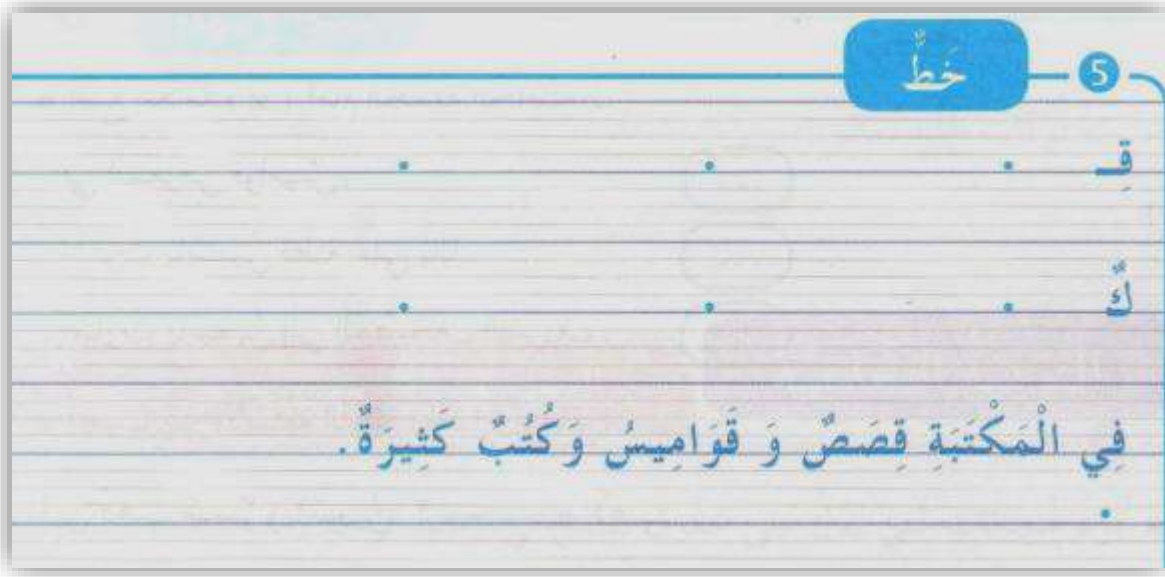 5 خَطٌّ
قِـ
كٌّ
فِي الْمَكْتَبَةِ قِصَصٌ وَ قَوَامِيسُ وَكُتُبٌ كَثِيرَةٌ.